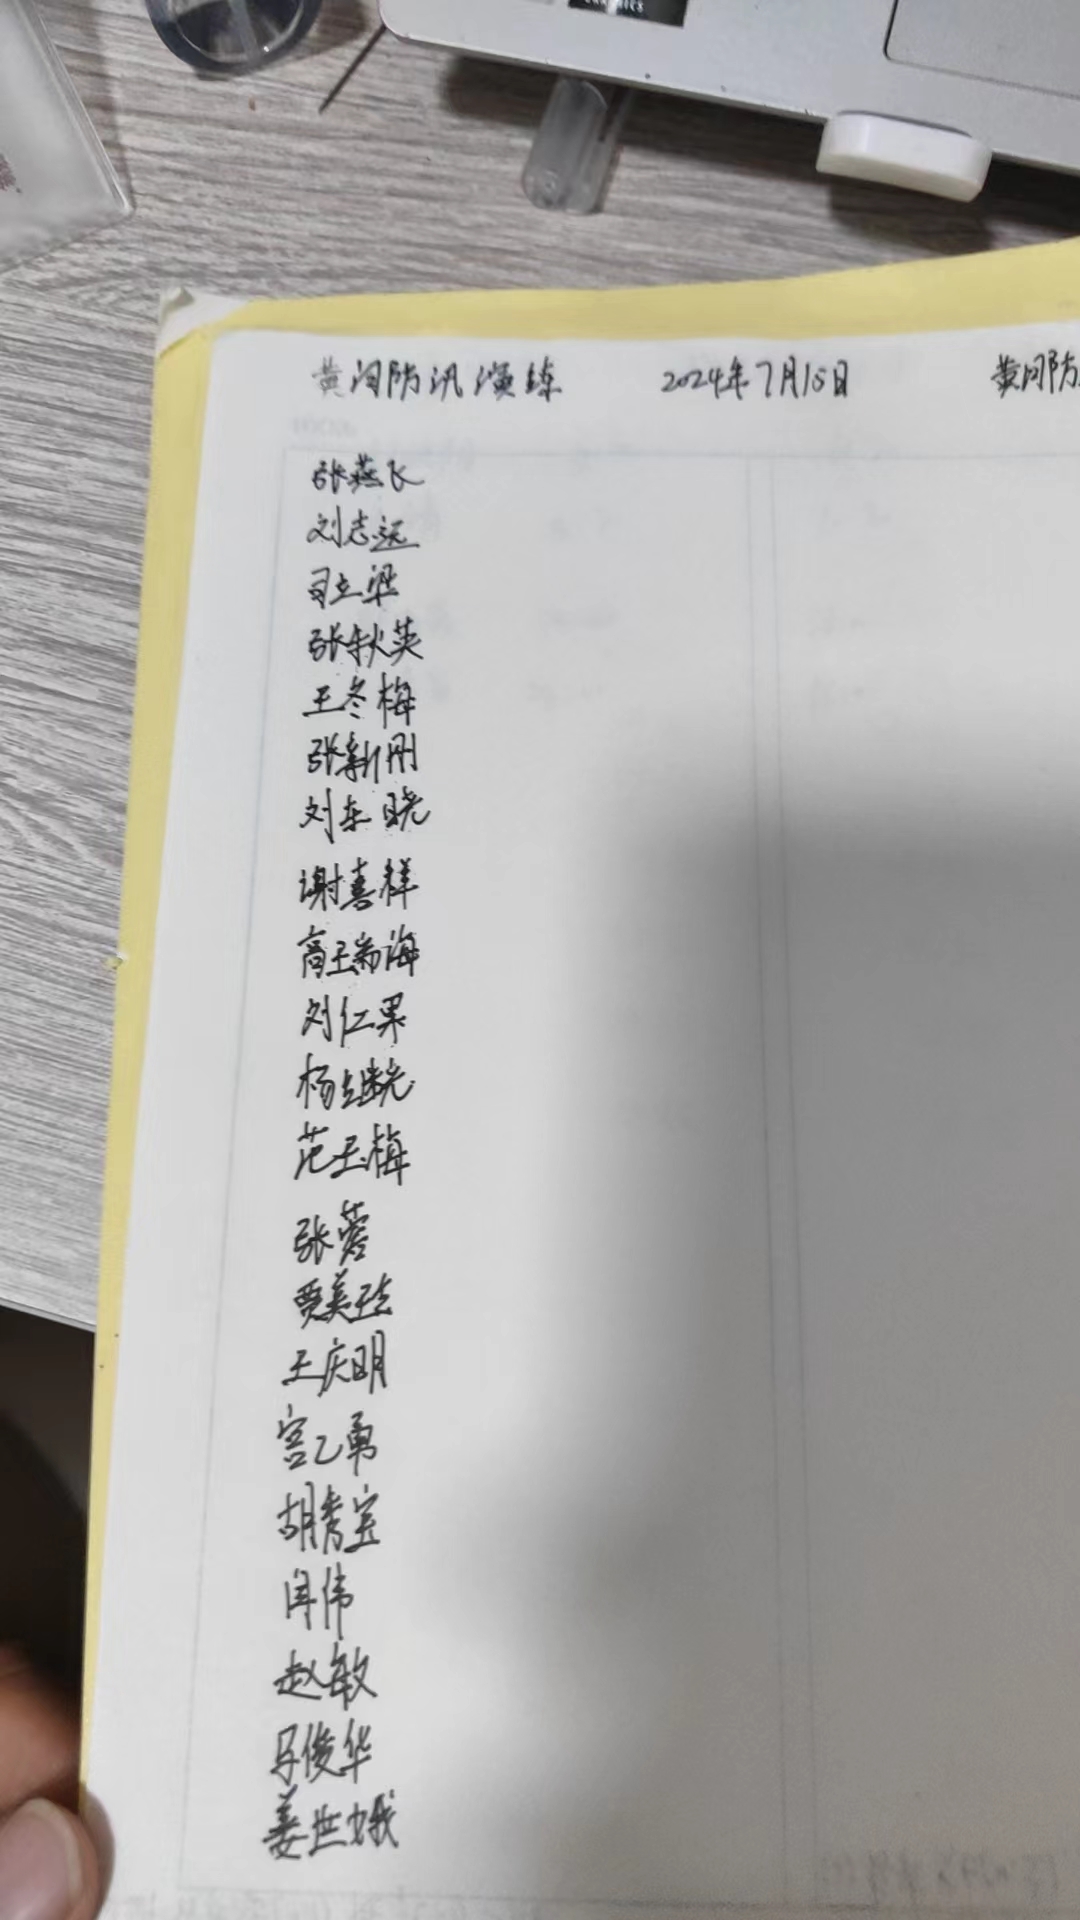 黄河防汛演练 2024年7月15日 黄河防
张燕飞
刘志远
司立梁
张秋英
王冬梅
张新刚
刘东晓
谢喜祥
高瑞海
刘仁果
杨继光
范玉梅
张蓉
贾美玲
王庆明
宫乙勇
胡秀宝
闫伟
赵敏
马俊华
姜世娥